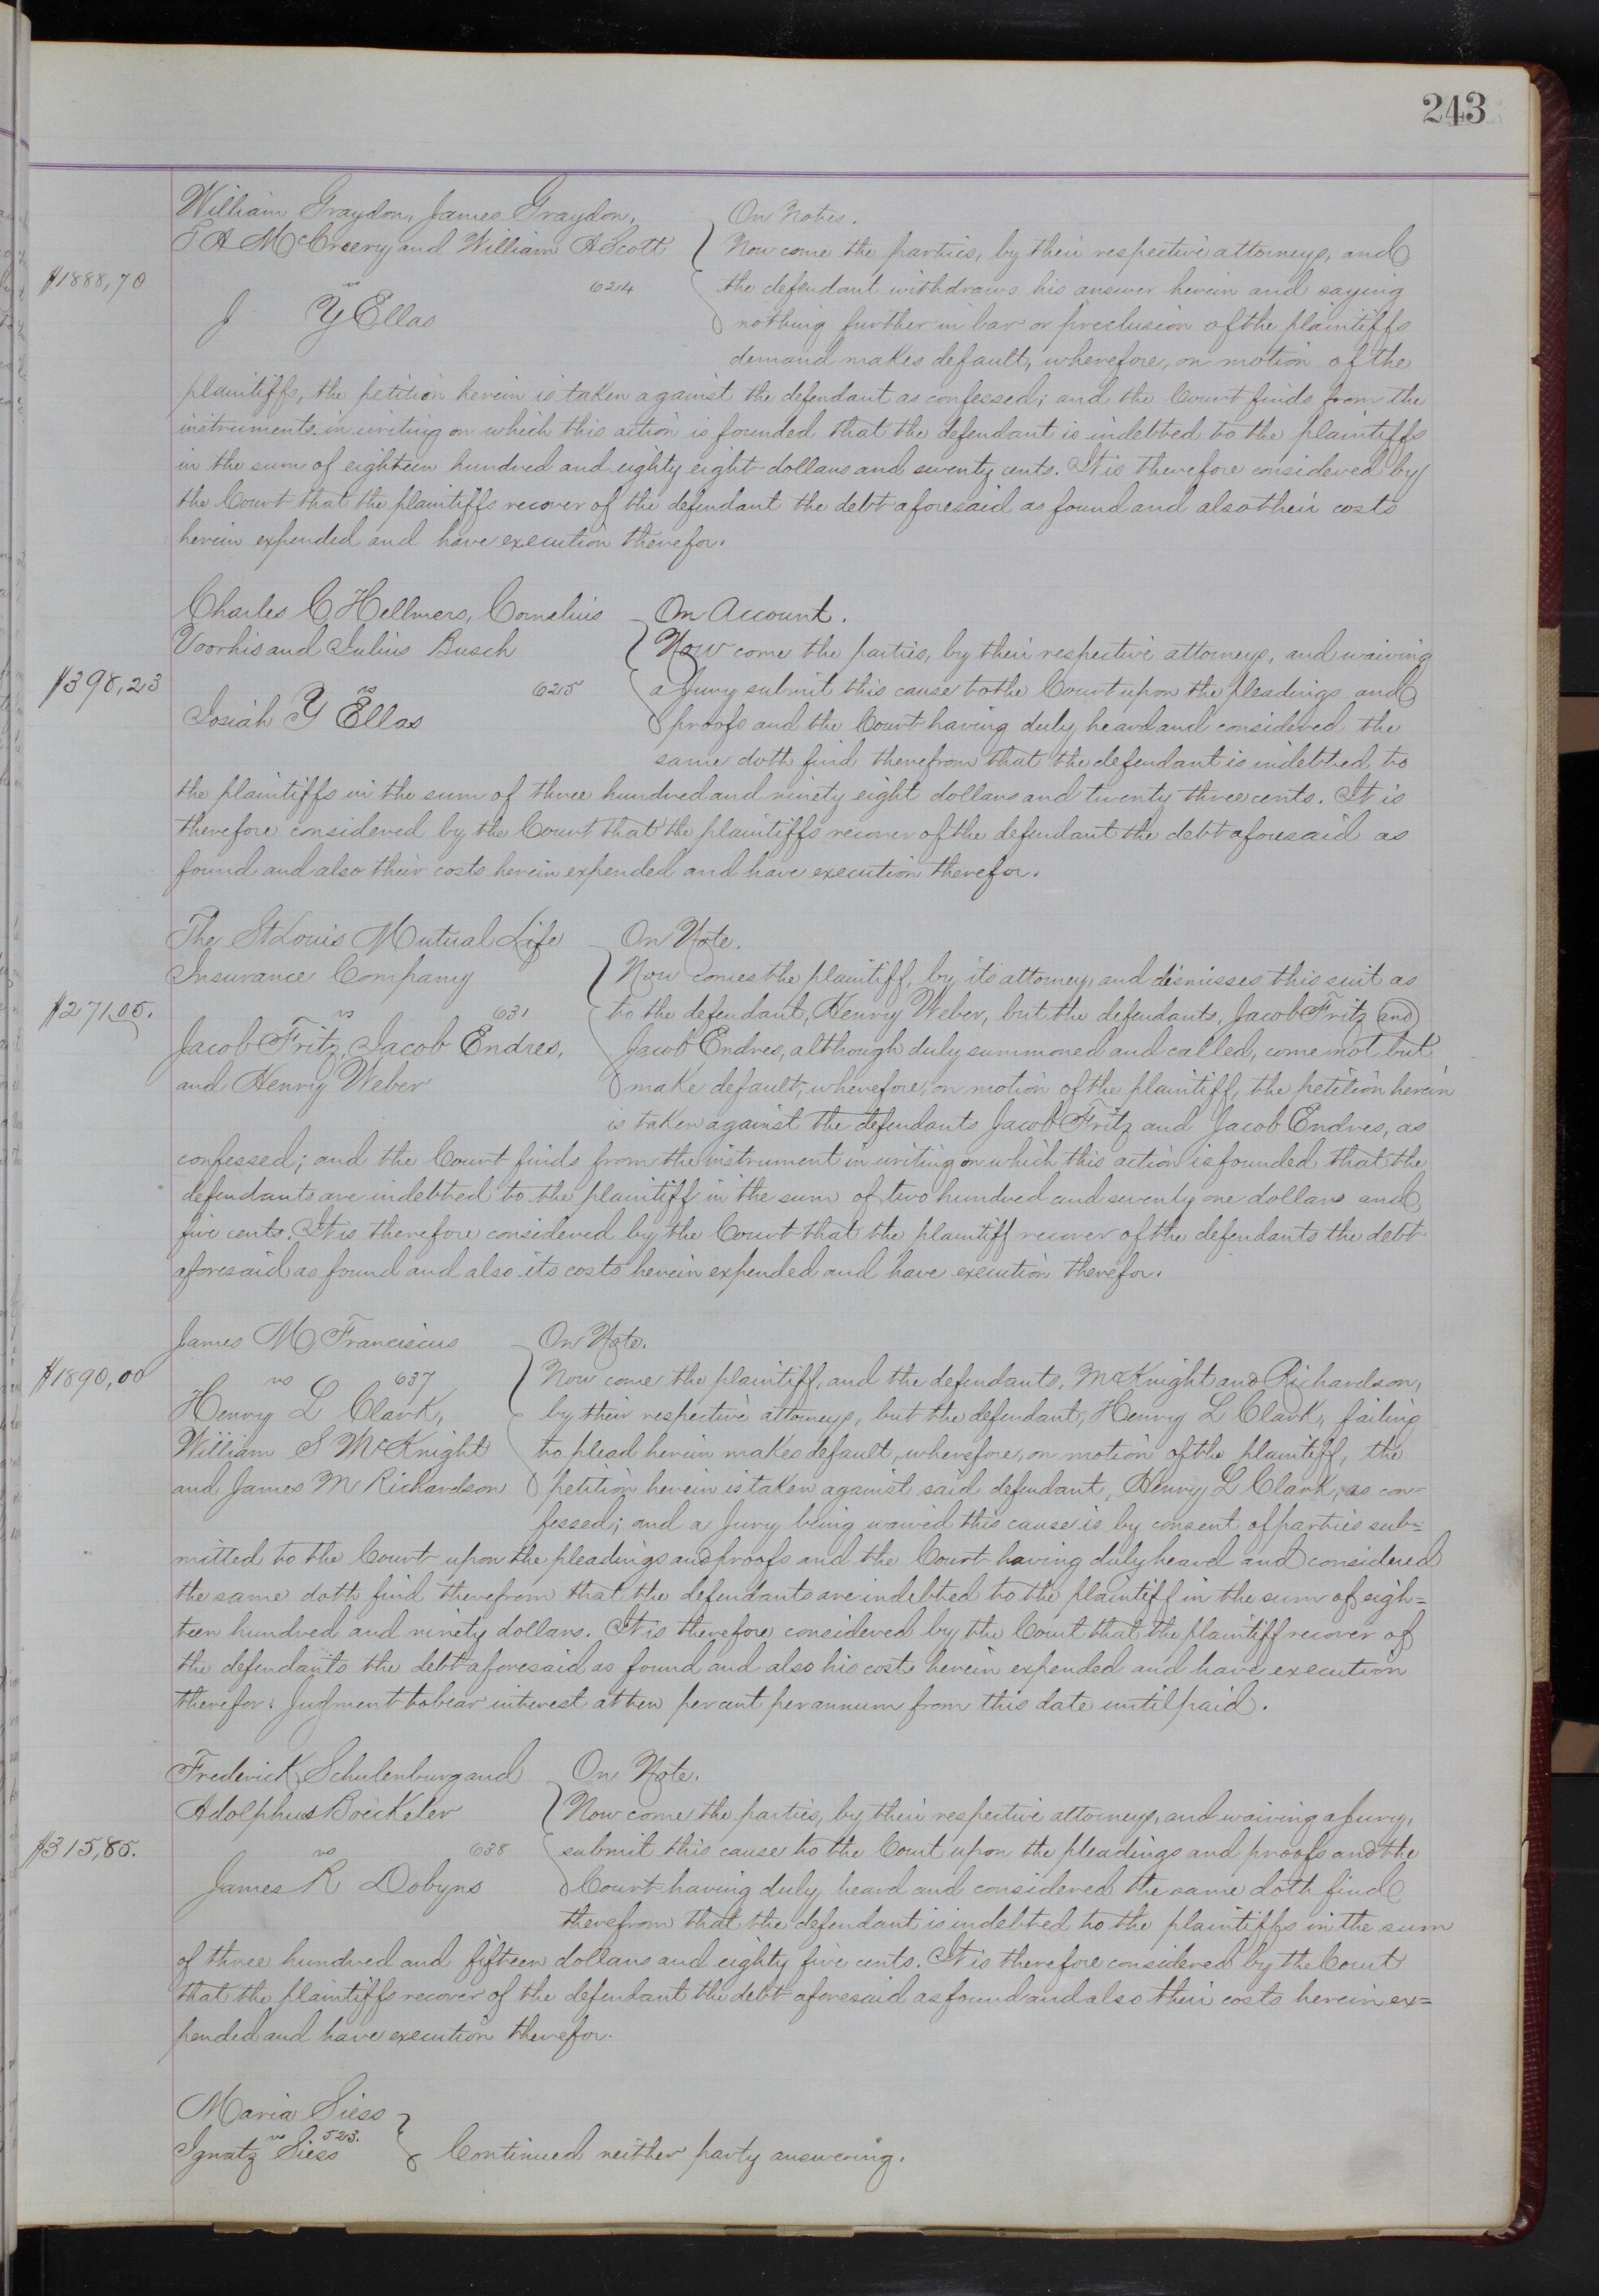 243
William Graydon, James Graydon,
T A McCreery and William A Scott
$1888,70
vs 624
J Y Ellas
On Notes.
Now come the parties, by their respective attorneys, and
the defendant withdraws his answer herein and saying
nothing further in bar or preclusion of the plaintiffs
demand makes default, wherefore, on motion of the
plaintiffs, the petition herein is taken against the defendant as confessed; and the Court finds from the
instruments in writing on which this action is founded that the defendant is indebted to the plaintiffs
in the sum of eighteen hundred and eighty eight dollars and seventy cents. It is therefore considered by
the Court that the plaintiffs recover of the defendant the debt aforesaid as found and also their costs
herein expended and have execution therefor.
Charles C Hellmers, Cornelius
Voorhis and Julius Busch
$398,23
vs 625
Josiah Y Ellas
On Account.
Now come the parties, by their respective attorneys, and waiving
a Jury submit this cause to the Court upon the pleadings and
proofs and the Court having duly heard and considered the
same doth find therefrom that the defendant is indebted to
the plaintiffs in the sum of three hundred and ninety eight dollars and twenty three cents. It is
therefore considered by the Court that the plaintiffs recover of the defendant the debt aforesaid as
found and also their costs herein expended and have execution therefor.
The St Louis Mutual Life
Insurance Company
$271,05.
vs 631
Jacob Fritz, Jacob Endres,
and Henry Weber
On Note.
Now comes the plaintiff, by its attorney, and dismisses this suit as
to the defendant, Henry Weber, but the defendants, Jacob Fritz and
Jacob Endres, although duly summoned and called, come not but
make default, wherefore, on motion of the plaintiff, the petition herein
is taken against the defendants Jacob Fritz and Jacob Endres, as
confessed; and the Court finds from the instrument in writing on which this action is founded that the
defendants are indebted to the plaintiff in the sum of two hundred and seventy one dollars and
five cents. It is therefore considered by the Court that the plaintiff recover of the defendants the debt
aforesaid as found and also its costs herein expended and have execution therefor.
James M Franciscus
$1890,00
vs 637
Henry L Clark,
William S McKnight
and James M Richardson
On Note.
Now come the plaintiff, and the defendants, McKnight and Richardson,
by their respective attorneys, but the defendant, Henry L Clark, failing
to plead herein makes default, wherefore, on motion of the plaintiff, the
petition herein is taken against said defendant, Henry L Clark, as con=
fessed; and a Jury being waived this cause is by consent of parties sub=
mitted to the Court upon the pleadings and proofs and the Court having duly heard and considered
the same doth find therefrom that the defendants are indebted to the plaintiff in the sum of eigh=
teen hundred and ninety dollars. It is therefore considered by the Court that the plaintiff recover of
the defendants the debt aforesaid as found and also his costs herein expended and have execution
therefor. Judgment to bear interest at ten per cent per annum from this date until paid.
Frederick Schulenburg and
Adolphus Boeckeler
$315,85.
vs 638
James R Dobyns
On Note.
Now come the parties, by their respective attorneys, and waiving a Jury,
submit this cause to the Court upon the pleadings and proofs and the
Court having duly heard and considered the same doth find
therefrom that the defendant is indebted to the plaintiffs in the sum
of three hundred and fifteen dollars and eighty five cents. It is therefore considered by the Court
that the plaintiffs recover of the defendant the debt aforesaid as found and also their costs herein ex=
pended and have execution therefor.
Maria Siess
vs 523.
Ignatz Siess
Continued neither party answering.